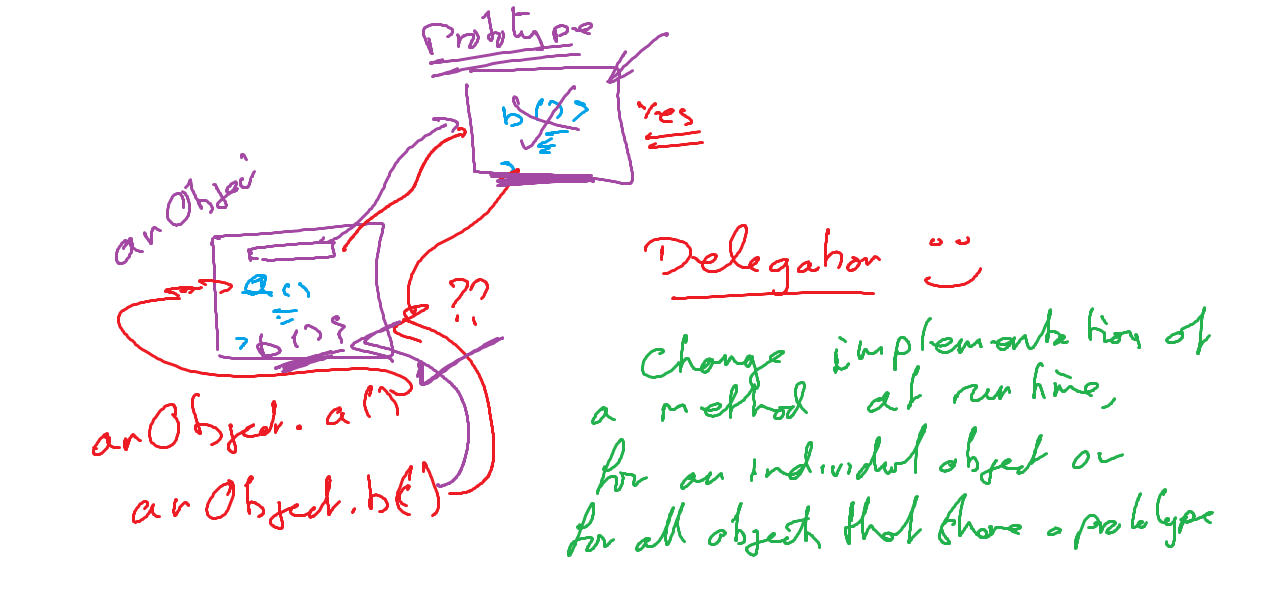 Prototype
b()
Yes
anObjec
a()
b(){
??
Delegation
anObject.a()
anObject.b()
Change implementation of
a method at runtime,
for an individual object or
for all objects that share a prototype